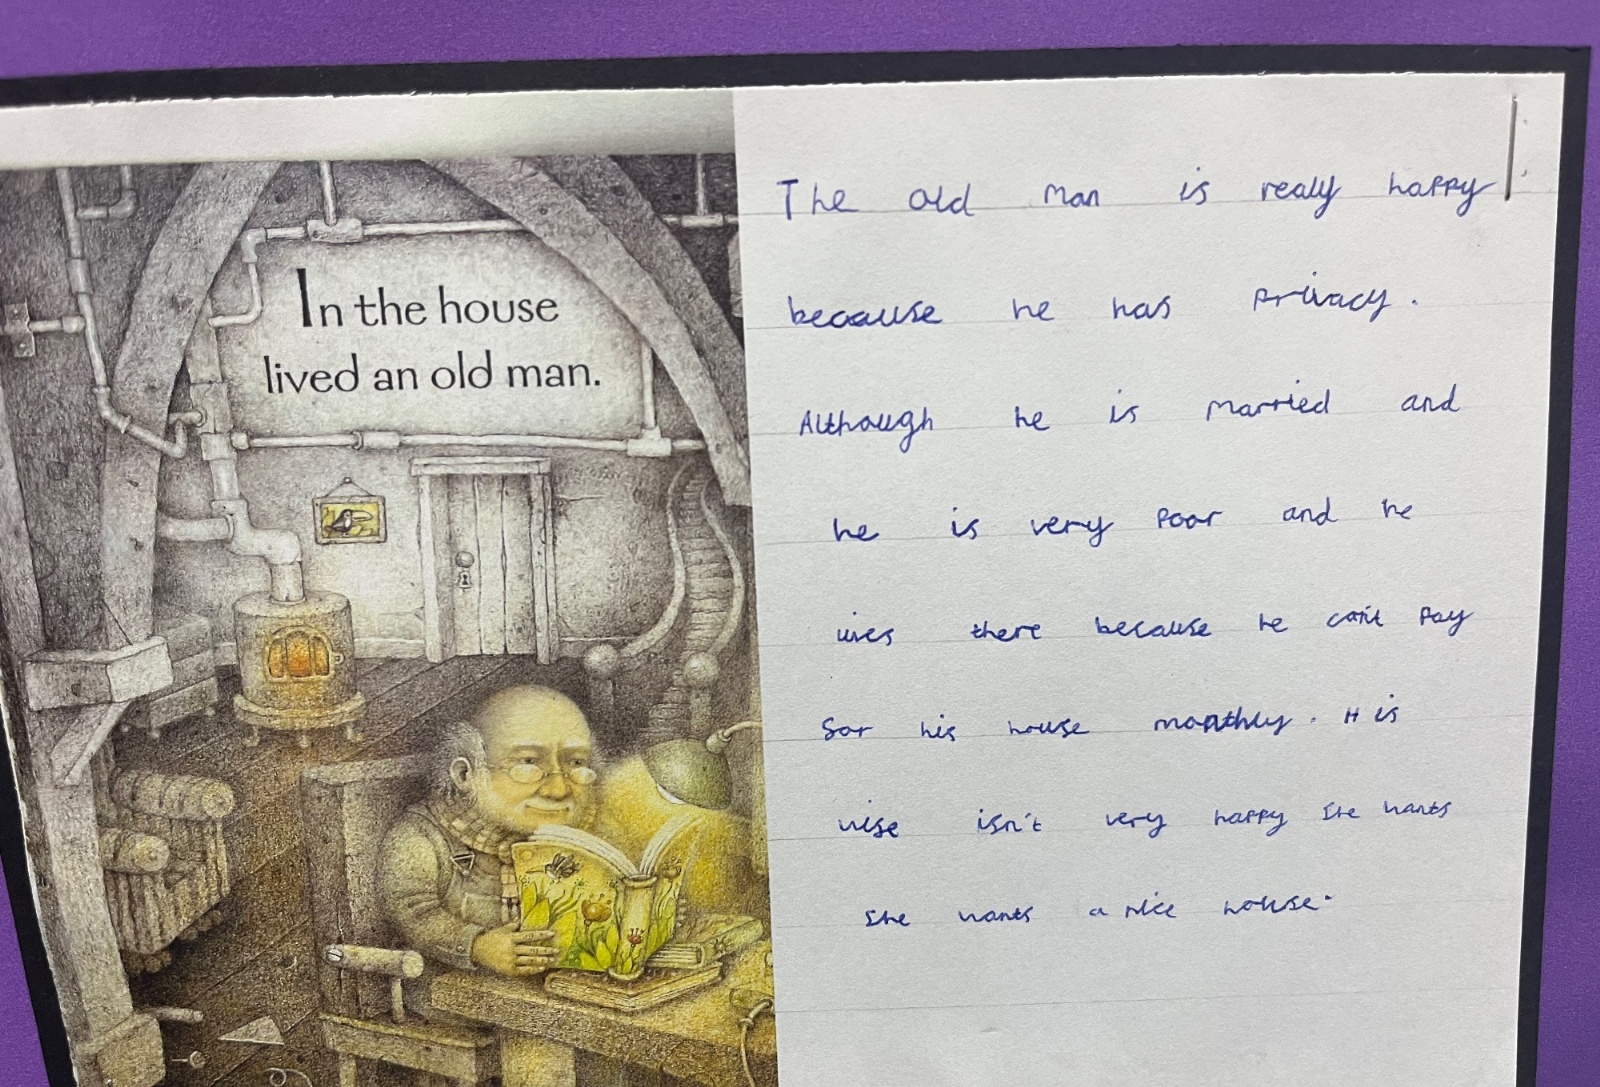 In the house
lived an old man.
The old man is realy happy
because he has privacy.
Although he is married and
he is very poor and he
lives there because he can't pay
for his house monthly. His
wife isn't very happy she wants
she wants a nice house.